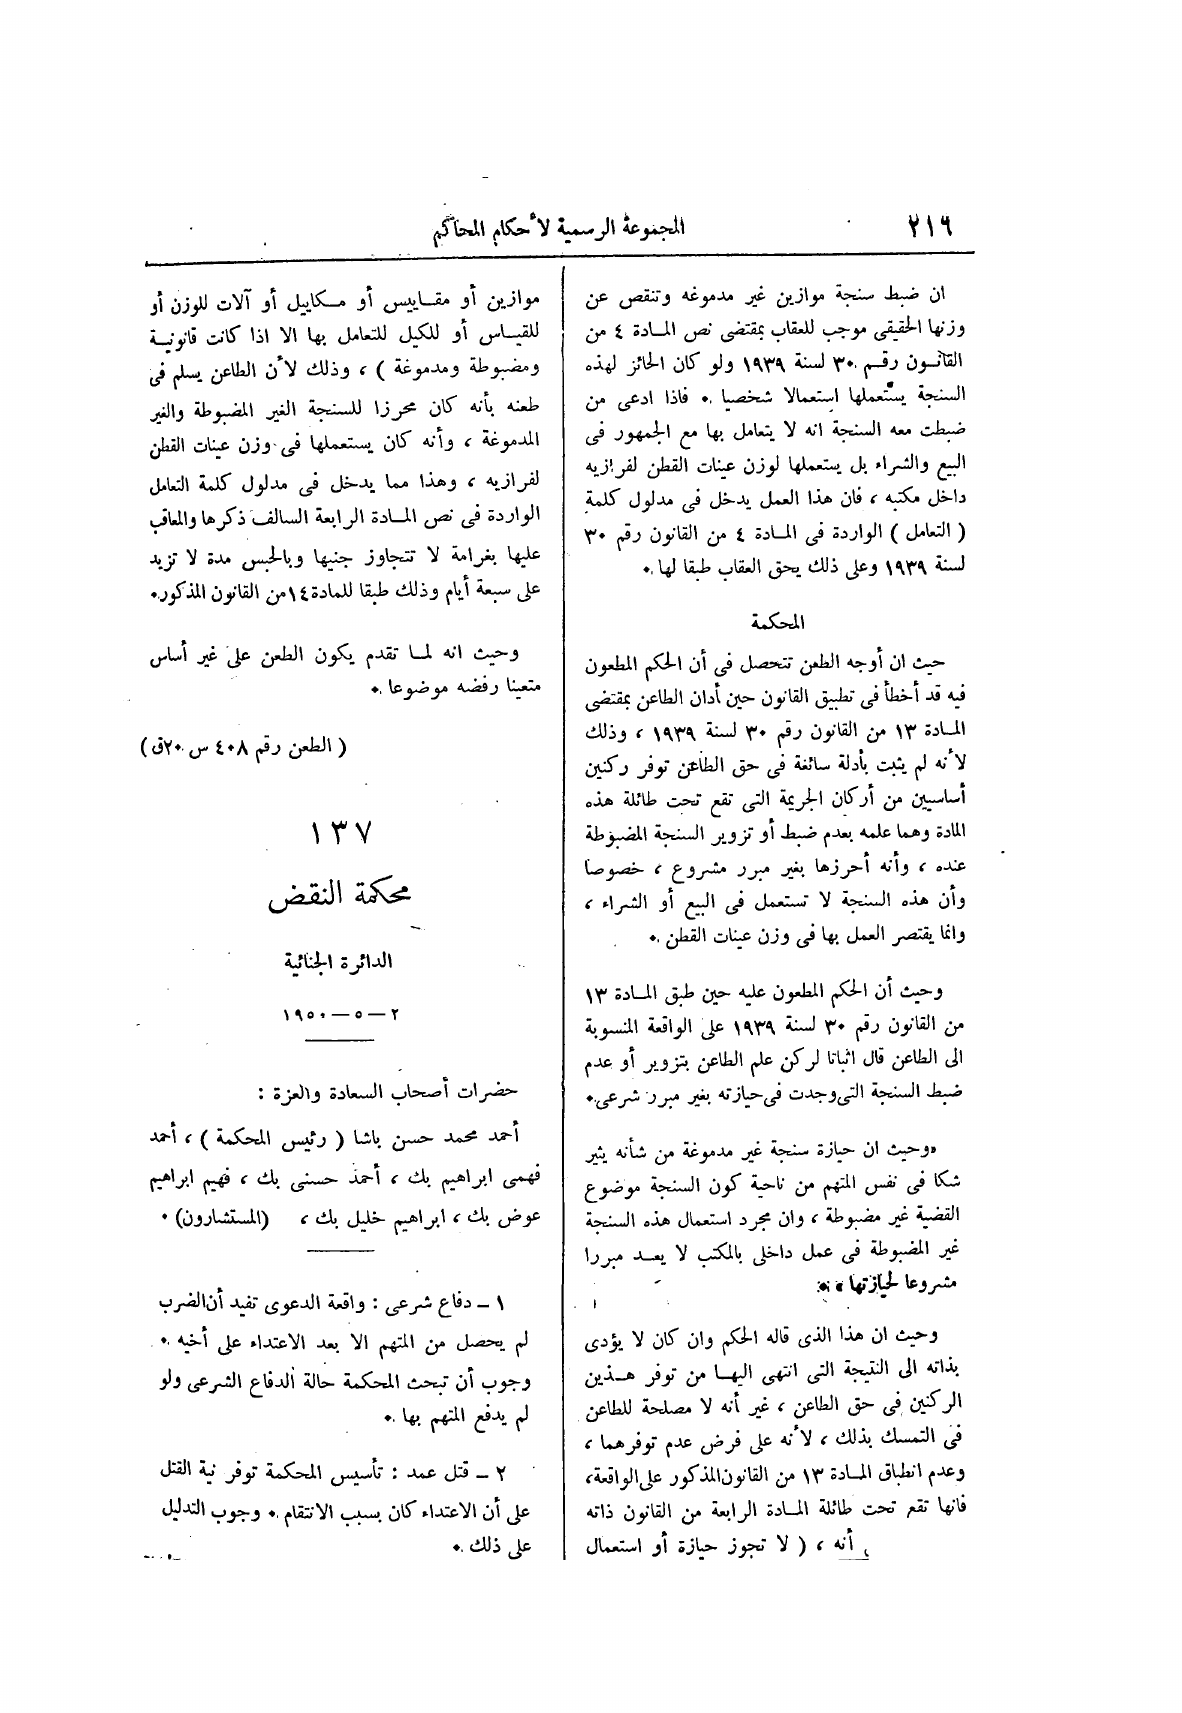 ٢١٦
المجموعة الرسمية لأحكام المحاكم
ان ضبط سنجة موازين غير مدموغه وتنقص عن
وزنها الحقيقى موجب للعقاب بمقتضى نص المادة ٤ من
القانون رقم ٣٠ لسنة ١٩٣٩ ولو كان الحائز لهذه
السنجة يستعملها استعمالا شخصيا . فاذا ادعى من
ضبطت معه السنجة انه لا يتعامل بها مع الجمهور فى
البيع والشراء بل يستعملها لوزن عينات القطن لفرازيه
داخل مكتبه ، فان هذا العمل يدخل فى مدلول كلمة
( التعامل ) الواردة فى المادة ٤ من القانون رقم ٣٠
لسنة ١٩٣٩ وعلى ذلك يحق العقاب طبقا لها .
المحكمة
حيث ان أوجه الطعن تتحصل فى أن الحكم المطعون
فيه قد أخطأ فى تطبيق القانون حين أدان الطاعن بمقتضى
المادة ١٣ من القانون رقم ٣٠ لسنة ١٩٣٩ ، وذلك
لأنه لم يثبت بأدلة سائغة فى حق الطاعن توفر ركنين
أساسيين من أركان الجريمة التى تقع تحت طائلة هذه
المادة وهما علمه بعدم ضبط أو تزوير السنجة المضبوطة
عنده ، وأنه أحرزها بغير مبرر مشروع ، خصوصا
وأن هذه السنجة لا تستعمل فى البيع أو الشراء ،
وانما يقتصر العمل بها فى وزن عينات القطن .
وحيث أن الحكم المطعون عليه حين طبق المادة ١٣
من القانون رقم ٣٠ لسنة ١٩٣٩ على الواقعة المنسوبة
الى الطاعن قال اثباتا لركن علم الطاعن بتزوير أو عدم
ضبط السنجة التى وجدت فى حيازته بغير مبرر شرعى .
«وحيث ان حيازة سنجة غير مدموغة من شأنه يثير
شكا فى نفس المتهم من ناحية كون السنجة موضوع
القضية غير مضبوطة ، وان مجرد استعمال هذه السنجة
غير المضبوطة فى عمل داخلى بالمكتب لا يعد مبررا
مشروعا لحيازتها » .
وحيث ان هذا الذى قاله الحكم وان كان لا يؤدى
بذاته الى النتيجة التى انتهى اليها من توفر هذين
الركنين فى حق الطاعن ، غير أنه لا مصلحة للطاعن
فى التمسك بذلك ، لأنه على فرض عدم توفرهما ،
وعدم انطباق المادة ١٣ من القانون المذكور على الواقعة،
فانها تقع تحت طائلة المادة الرابعة من القانون ذاته
أنه ، ( لا تجوز حيازة أو استعمال
موازين أو مقاييس أو مكاييل أو آلات للوزن أو
للقياس أو للكيل للتعامل بها الا اذا كانت قانونية
ومضبوطة ومدموغة ) ، وذلك لأن الطاعن يسلم فى
طعنه بأنه كان محرزا للسنجة الغير المضبوطة والغير
المدموغة ، وأنه كان يستعملها فى وزن عينات القطن
لفرازيه ، وهذا مما يدخل فى مدلول كلمة التعامل
الواردة فى نص المادة الرابعة السالف ذكرها والمعاقب
عليها بغرامة لا تتجاوز جنيها وبالحبس مدة لا تزيد
على سبعة أيام وذلك طبقا للمادة ١٤ من القانون المذكور.
وحيث انه لما تقدم يكون الطعن على غير أساس
متعينا رفضه موضوعا .
( الطعن رقم ٤٠٨ س ٢٠ق )
١٣٧
محكمة النقض
الدائرة الجنائية
٢ — ٥ — ١٩٥٠
حضرات أصحاب السعادة والعزة :
أحمد محمد حسن باشا ( رئيس المحكمة ) ، أحمد
فهمى ابراهيم بك ، أحمد حسنى بك ، فهيم ابراهيم
عوض بك ، ابراهيم خليل بك ، (المستشارون) .
١ — دفاع شرعى : واقعة الدعوى تفيد أن الضرب
لم يحصل من المتهم الا بعد الاعتداء على أخيه .
وجوب أن تبحث المحكمة حالة الدفاع الشرعى ولو
لم يدفع المتهم بها .
٢ — قتل عمد : تأسيس المحكمة توفر نية القتل
على أن الاعتداء كان بسبب الانتقام . وجوب التدليل
على ذلك .